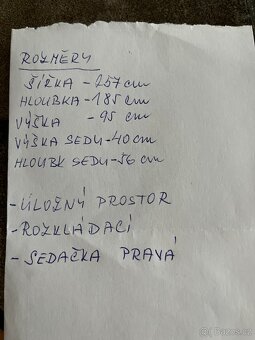 ROZMĚRY
ŠÍŘKA - 257cm
HLOUBKA - 185cm
VÝŠKA - 95cm
VÝŠKA SEDU - 40cm
HLOUBK SEDU - 56cm
- ÚLOŽNÝ PROSTOR
- ROZKLÁDACÍ
- SEDAČKA PRAVÁ